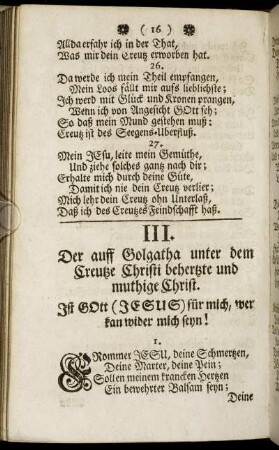 ( 16 )
Allda erfahr ich in der That,
Was mir dein Creutz erworben hat.
26.
Da werde ich mein Theil empfangen,
Mein Loos fällt mir aufs lieblichste;
Ich werd mit Glück und Kronen prangen,
Wenn ich von Angesicht GOtt seh;
So daß mein Mund gestehen muß:
Creutz ist des Seegens-Uberfluß.
27.
Mein JEsu, leite mein Gemüthe,
Und ziehe solches gantz nach dir;
Erhalte mich durch deine Güte,
Damit ich nie dein Creutz verlier;
Mich lehr dein Creutz ohn Unterlaß,
Daß ich des Creutzes Feindschafft haß.
III.
Der auff Golgatha unter dem
Creutze Christi behertzte und
muthige Christ.
Ist GOtt (JESUS) für mich, wer
kan wider mich seyn!
1.
FRommer JESU, deine Schmertzen,
Deine Marter, deine Pein;
Sollen meinem krancken Hertzen
Ein bewehrter Balsam seyn;
Deine